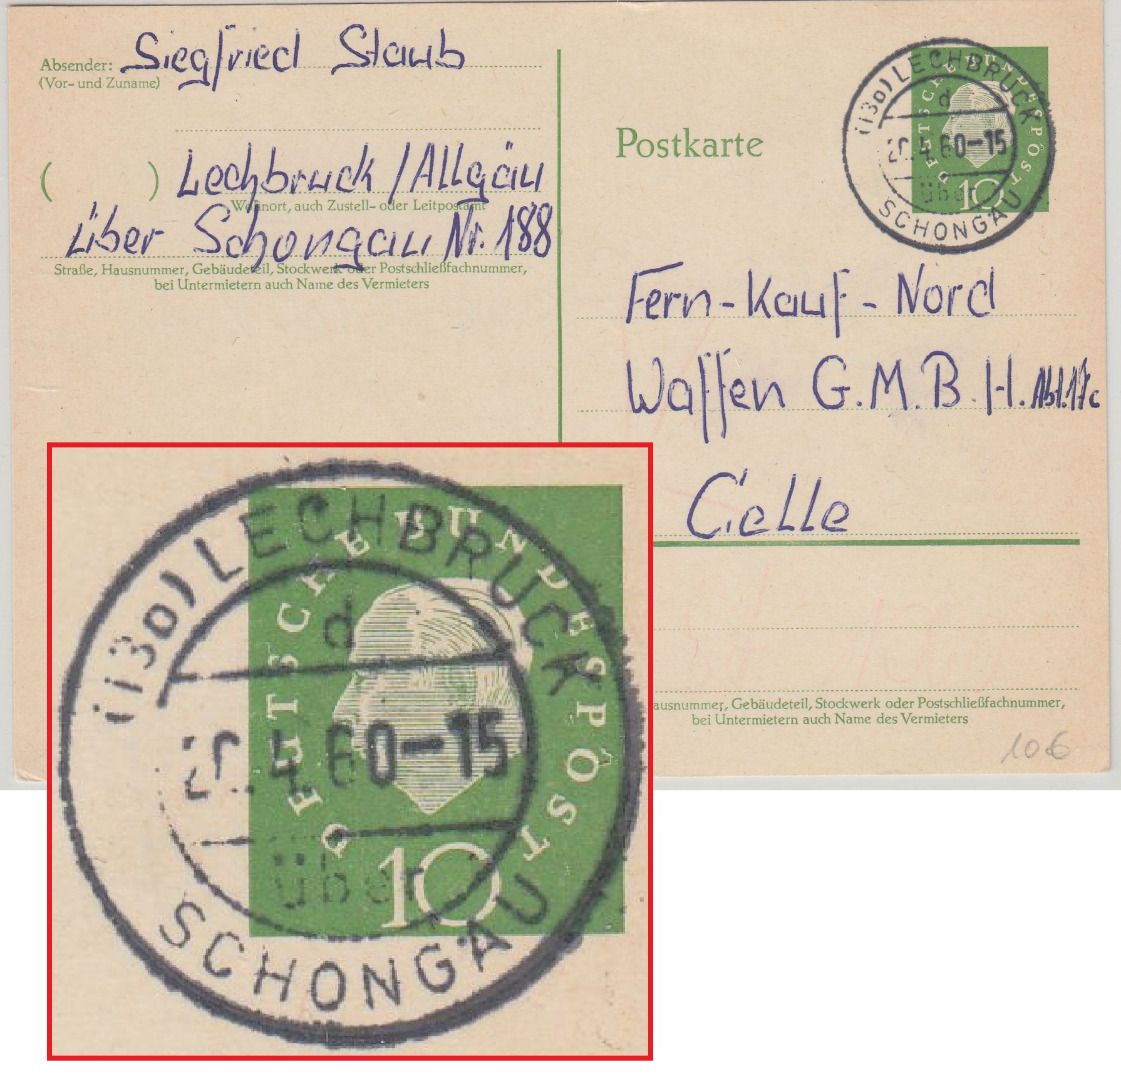 Absender: Siegfried Staub
(Vor- und Zuname)
( ) Lechbruck/Allgäu
Wohnort, auch Zustell- oder Leitpostamt
über Schongau Nr. 188
Straße, Hausnummer, Gebäudeteil, Stockwerk oder Postschließfachnummer,
bei Untermietern auch Name des Vermieters
Postkarte
DEUTSCHE BUNDESPOST
10
(13b) LECHBRUCK
d
20.4.60-15
über
SCHONGAU
Fern-Kauf-Nord
Waffen G.M.B.H. Abt. 17c
Celle
ausnummer, Gebäudeteil, Stockwerk oder Postschließfachnummer,
bei Untermietern auch Name des Vermieters
10 €
(13b) LECHBRUCK
DEUTSCHE BUNDESPOST
d
20.4.60-15
über
10
SCHONGAU